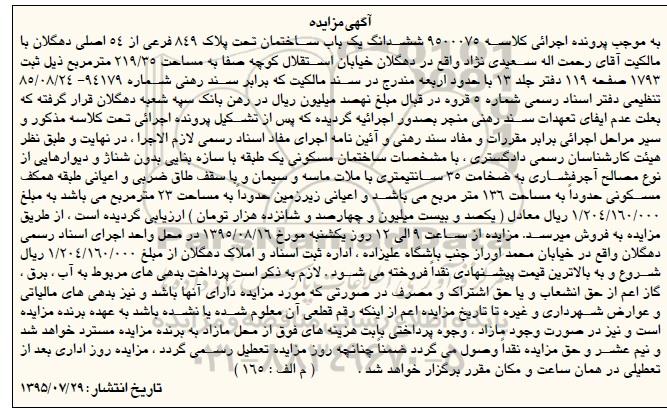 آگهی مزایده
به موجب پرونده اجرائی کلاسه ۹۵۰۰۰۷۵ ششدانگ یک باب ساختمان تحت پلاک ۸۴۹ فرعی از ۵۴ اصلی دهگلان با
مالکیت آقای رحمت اله سعیدی نژاد واقع در دهگلان خیابان استقلال کوچه صفا به مساحت ۲۱۹/۳۵ مترمربع ذیل ثبت
۱۷۹۳ صفحه ۱۱۹ دفتر جلد ۱۳ با حدود اربعه مندرج در سند مالکیت که برابر سند رهنی شماره ۹۴۱۷۹- ۸۵/۰۸/۲۴
تنظیمی دفتر اسناد رسمی شماره ۵ قروه در قبال مبلغ نهصد میلیون ریال در رهن بانک سپه شعبه دهگلان قرار گرفته که
بعلت عدم ایفای تعهدات سند رهنی منجر بصدور اجرائیه گردیده که پس از تشکیل پرونده اجرائی تحت کلاسه مذکور و
سیر مراحل اجرائی برابر مقررات و مفاد سند رهنی و آئین نامه اجرای مفاد اسناد رسمی لازم الاجرا ، در نهایت و طبق نظر
هیئت کارشناسان رسمی دادگستری ، با مشخصات ساختمان مسکونی یک طبقه با سازه بنایی بدون شناژ و دیوارهایی از
نوع مصالح آجرفشاری به ضخامت ۳۵ سانتیمتری با ملات ماسه و سیمان و با سقف طاق ضربی و اعیانی طبقه همکف
مسکونی حدوداً به مساحت ۱۳۶ متر مربع می باشد و اعیانی زیرزمین حدوداً به مساحت ۲۳ مترمربع می باشد به مبلغ
۱/۲۰۴/۱۶۰/۰۰۰ ریال معادل ( یکصد و بیست میلیون و چهارصد و شانزده هزار تومان ) ارزیابی گردیده است ، از طریق
مزایده به فروش میرسد. مزایده از ساعت ۹ الی ۱۲ روز یکشنبه مورخ ۱۳۹۵/۰۸/۱۶ در محل واحد اجرای اسناد رسمی
دهگلان واقع در خیابان محمد اوراز جنب باشگاه علیزاده ، اداره ثبت اسناد و املاک دهگلان از مبلغ ۱/۲۰۴/۱۶۰/۰۰۰ ریال
شروع و به بالاترین قیمت پیشنهادی نقداً فروخته می شود . لازم به ذکر است پرداخت بدهی های مربوط به آب ، برق ،
گاز اعم از حق انشعاب و یا حق اشتراک و مصرف در صورتی که مورد مزایده دارای آنها باشد و نیز بدهی های مالیاتی
و عوارض شهرداری و غیره تا تاریخ مزایده اعم از اینکه رقم قطعی آن معلوم شده یا نشده باشد به عهده برنده مزایده
است و نیز در صورت وجود مازاد ، وجوه پرداختی بابت هزینه های فوق از محل مازاد به برنده مزایده مسترد خواهد شد
و نیم عشر و حق مزایده نقداً وصول می گردد ضمناً چنانچه روز مزایده تعطیل رسمی گردد ، مزایده روز اداری بعد از
تعطیلی در همان ساعت و مکان مقرر برگزار خواهد شد . ( م الف : ۱۶۵ )
تاریخ انتشار: ۱۳۹۵/۰۷/۲۹
ParsNamadData
۰۲۱-۸۸۳۴۹۶۷۰-۵